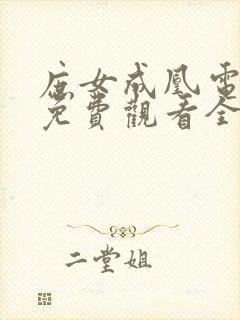 庶女成凰電
免費觀看全
二堂姐